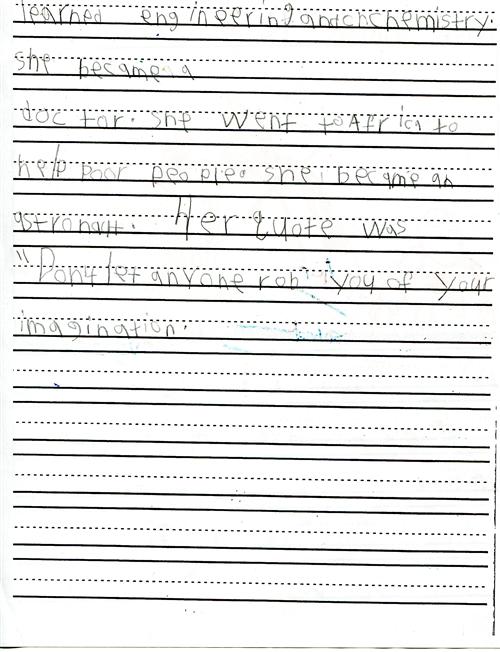 learned engineering and chchemistry.
she became a
doctor. she went to Africa to
help poor people. she became an
astronatt. Her quote was
"Dont let anyone rob you of your
imagination.